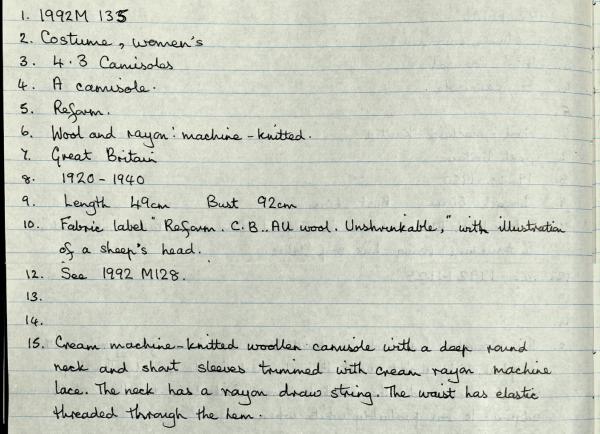 1. 1992M 135
2. Costume, women's
3. 4.3 Camisoles
4. A camisole.
5. Reform.
6. Wool and rayon: machine-knitted.
7. Great Britain
8. 1920-1940
9. Length 49cm Bust 92cm
10. Fabric label "Reform. C.B.. All wool. Unshrinkable," with illustration
of a sheep's head.
12. See 1992 M128.
13.
14.
15. Cream machine-knitted woollen camisole with a deep round
neck and short sleeves trimmed with cream rayon machine
lace. The neck has a rayon draw string. The waist has elastic
threaded through the hem.